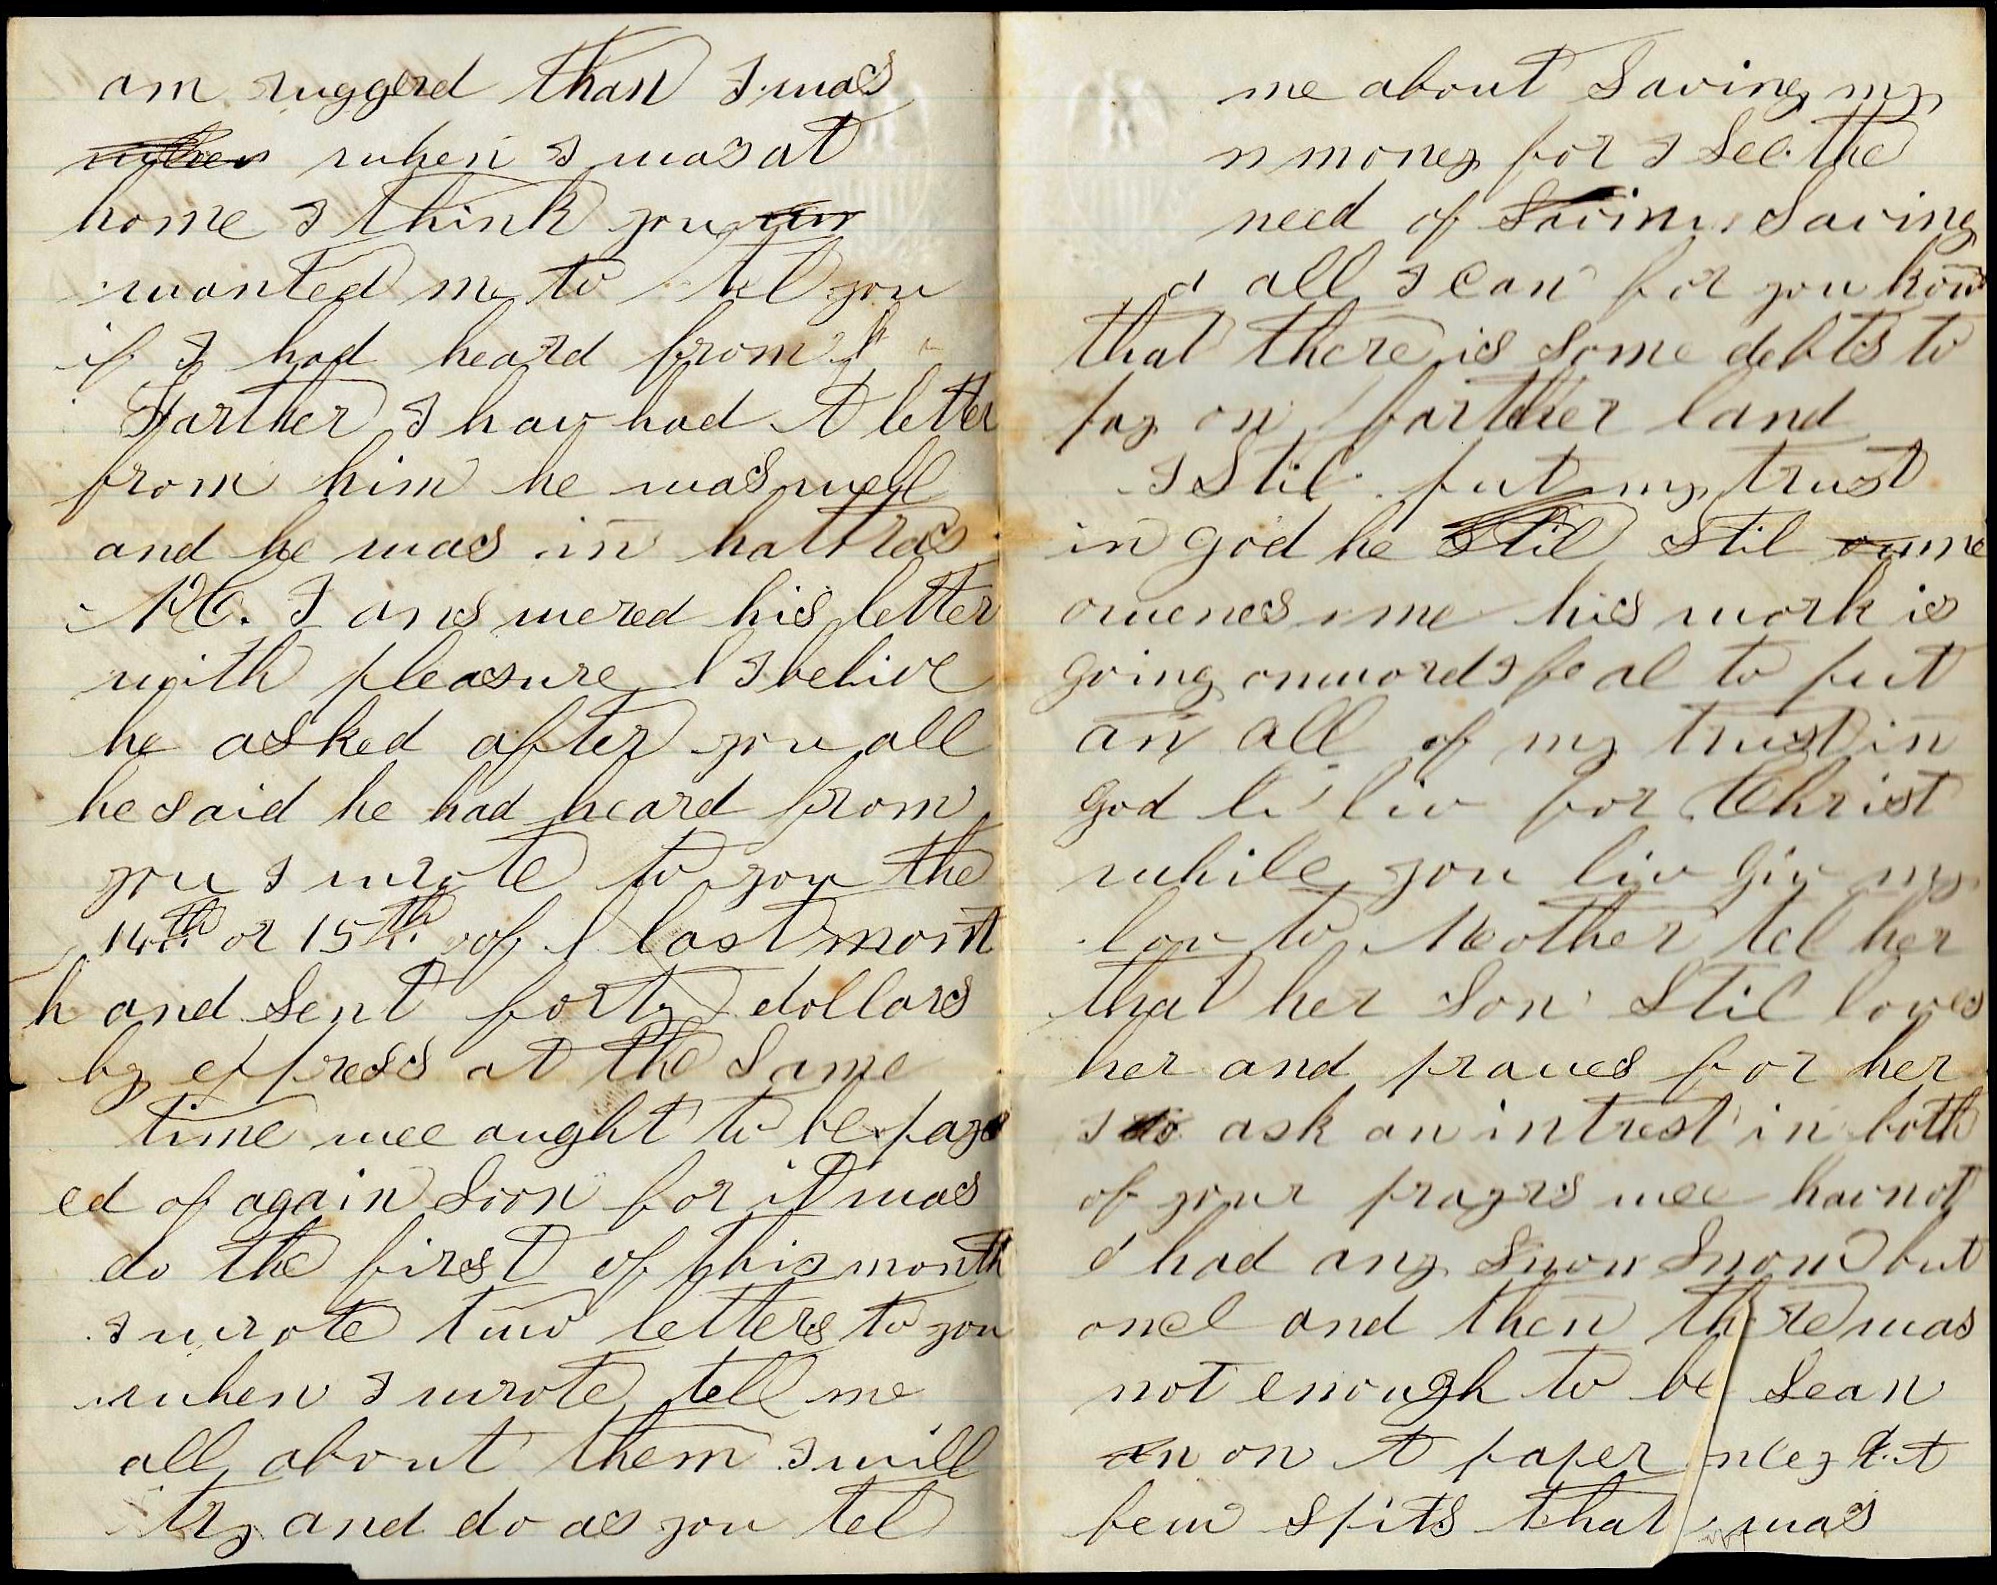 am ruggerd than I was
when when I was at
home I think you
wanted me to tel you
if I had heard from
Farther I hav had A letter
from him he was well
and he was in hattras
N.C. I answered his letter
with pleasure I belive
he asked after you all
he said he had heard from
you I wrote to you the
14th or 15th of last mont
h and sent forty dollars
by express at the same
time wee aught to be pay
ed of again soon for it was
do the first of this month
I wrote two letters to you
when I wrote tell me
all about them I will
try and do as you tel
me about Saving my
money for I See the
need of Saving Saving
all I Can for you know
that there is some debts to
pay on farther land
I Stil put my trust
in god he Stil Stil
owenes me his work is
going onwords I feal to put
an all of my trust in
god liv for Christ
while you liv giv my
lov to Mother tel her
that her Son Stil loves
her and praues for her
I do ask an intrest in both
of your prayrs wee hav not
had any Snow Snow but
onel and then there was
not enough to be Sean
an on A paper
few spits that was